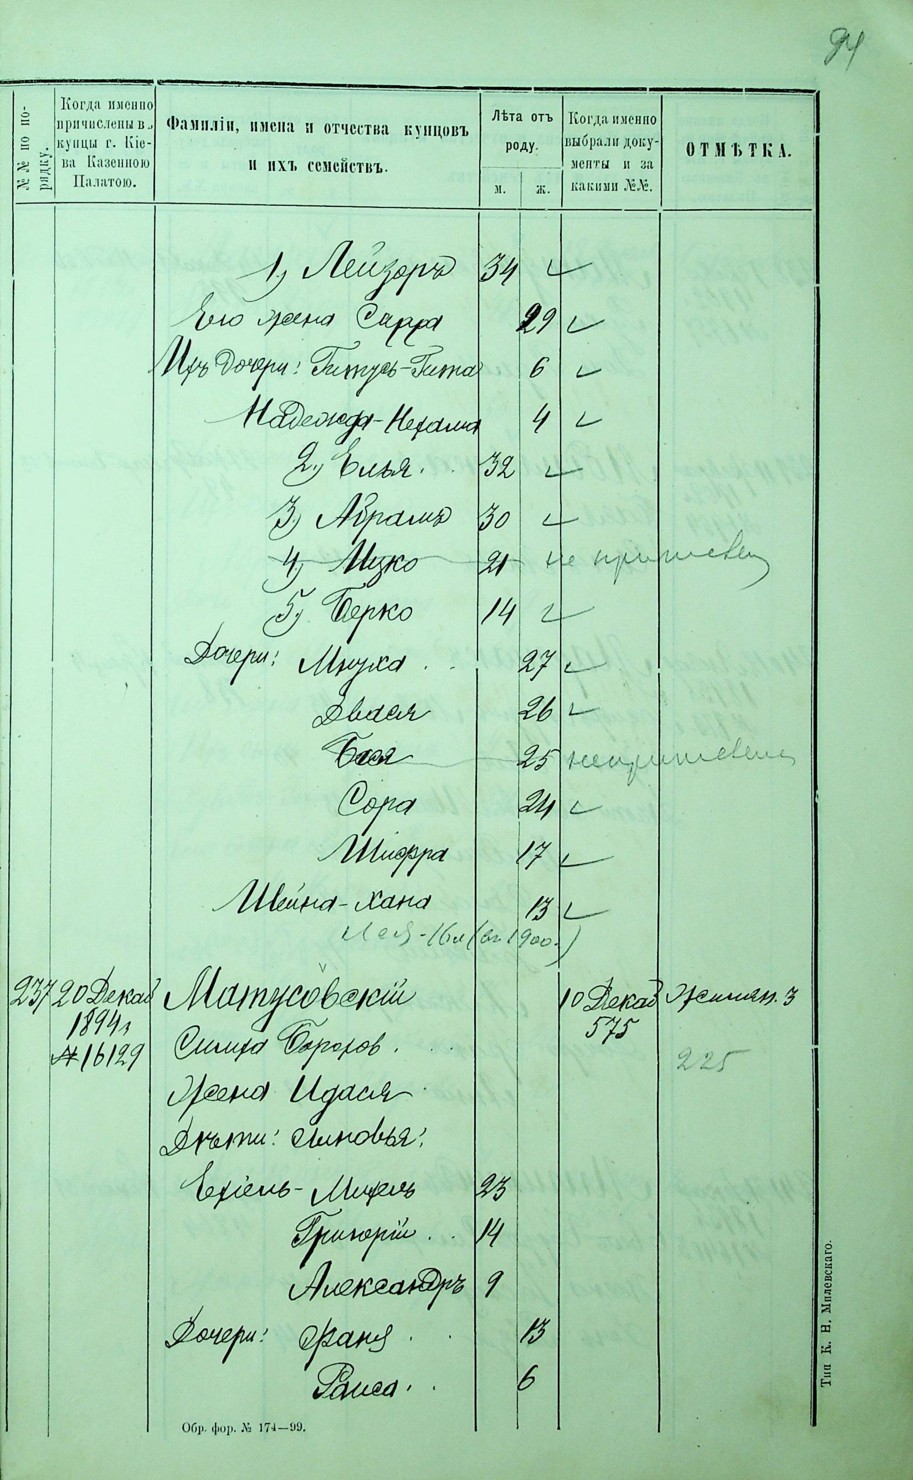 94
№№ по по-
рядку.
Когда именно
причислены в
купцы г. Кіе-
ва Казенною
Палатою.
Фамиліи, имена и отчества купцовъ
и ихъ семействъ.
Лѣта отъ
роду.
м. ж.
Когда именно
выбрали доку-
менты и за
какими №№.
ОТМѢТКА.
1, Лейзоръ 34
Его жена Сарра 29
Ихъ дочери: Гитусь-Гита 6
Надежда-Нехама 4
2, Елья. 32
3, Абрамъ 30
4, Ицко 21
5, Берко 14
Дочери: Мнуха 27
Двася 26
Бася 25
Сора 24
Шифра 17
Шейна-Хана 13
Лея - 16 л (въ 1900.)
237 20 Декаб Матусовскій 10 Декаб Жилян. 3
1894 г 575
№ 16129 Симха Борохов. 225
Жена Идася
Дѣти: сыновья:
Ехіель-Михель 23
Григорій 14
Александръ 9
Дочери: Фаня 13
Раиса 6
Обр. фор. № 174—99.
Тип К. Н. Милевскаго.